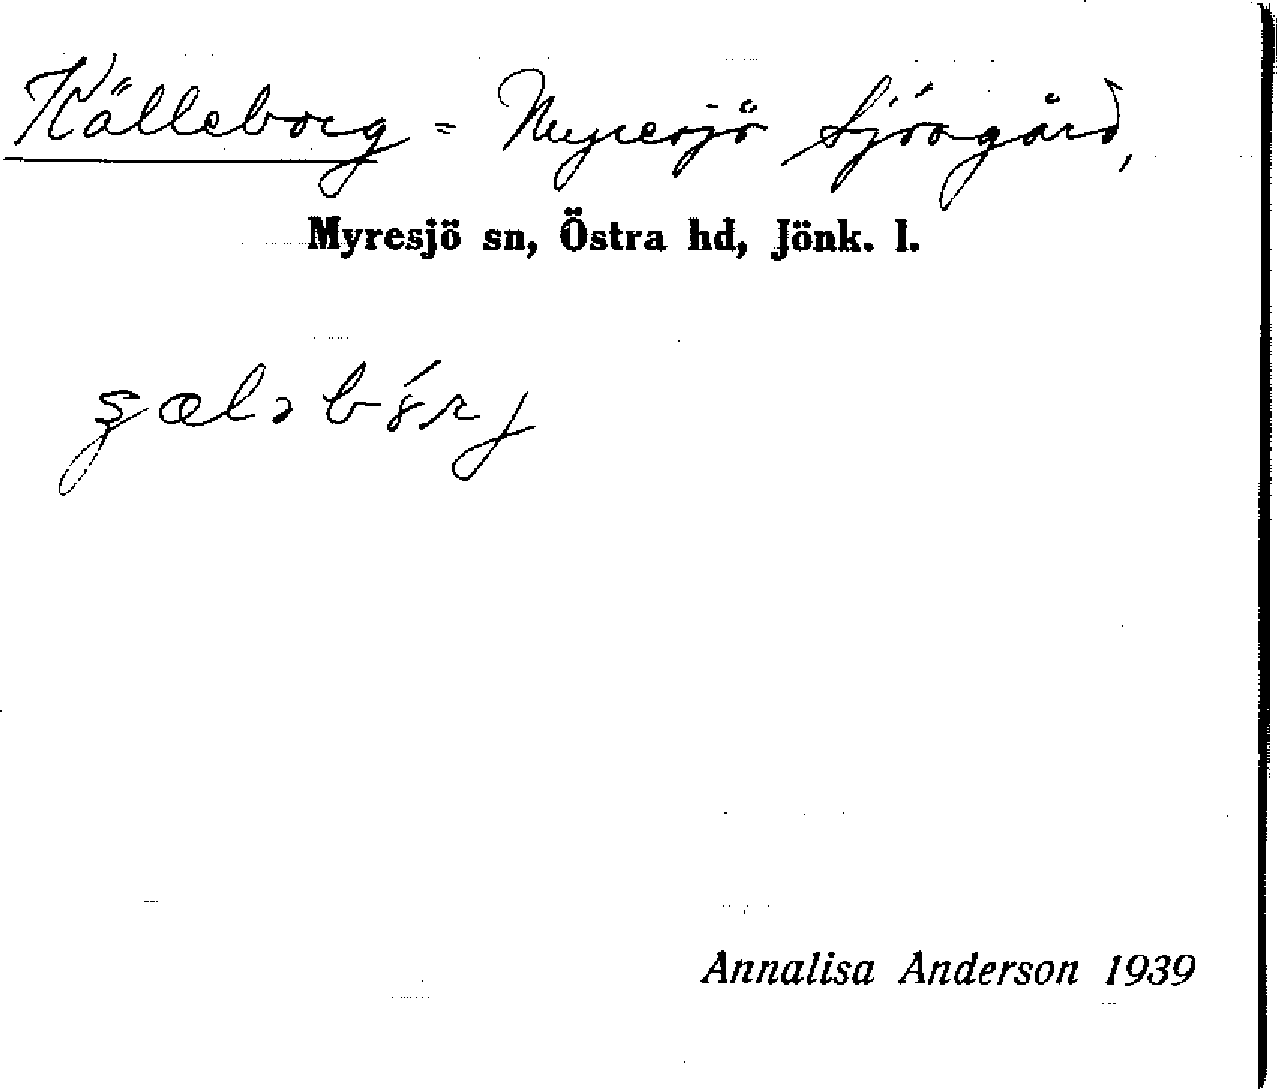 Källeborg = Myresjö Sjögård,
Myresjö sn, Östra hd, Jönk. l.
Annalisa Anderson 1939